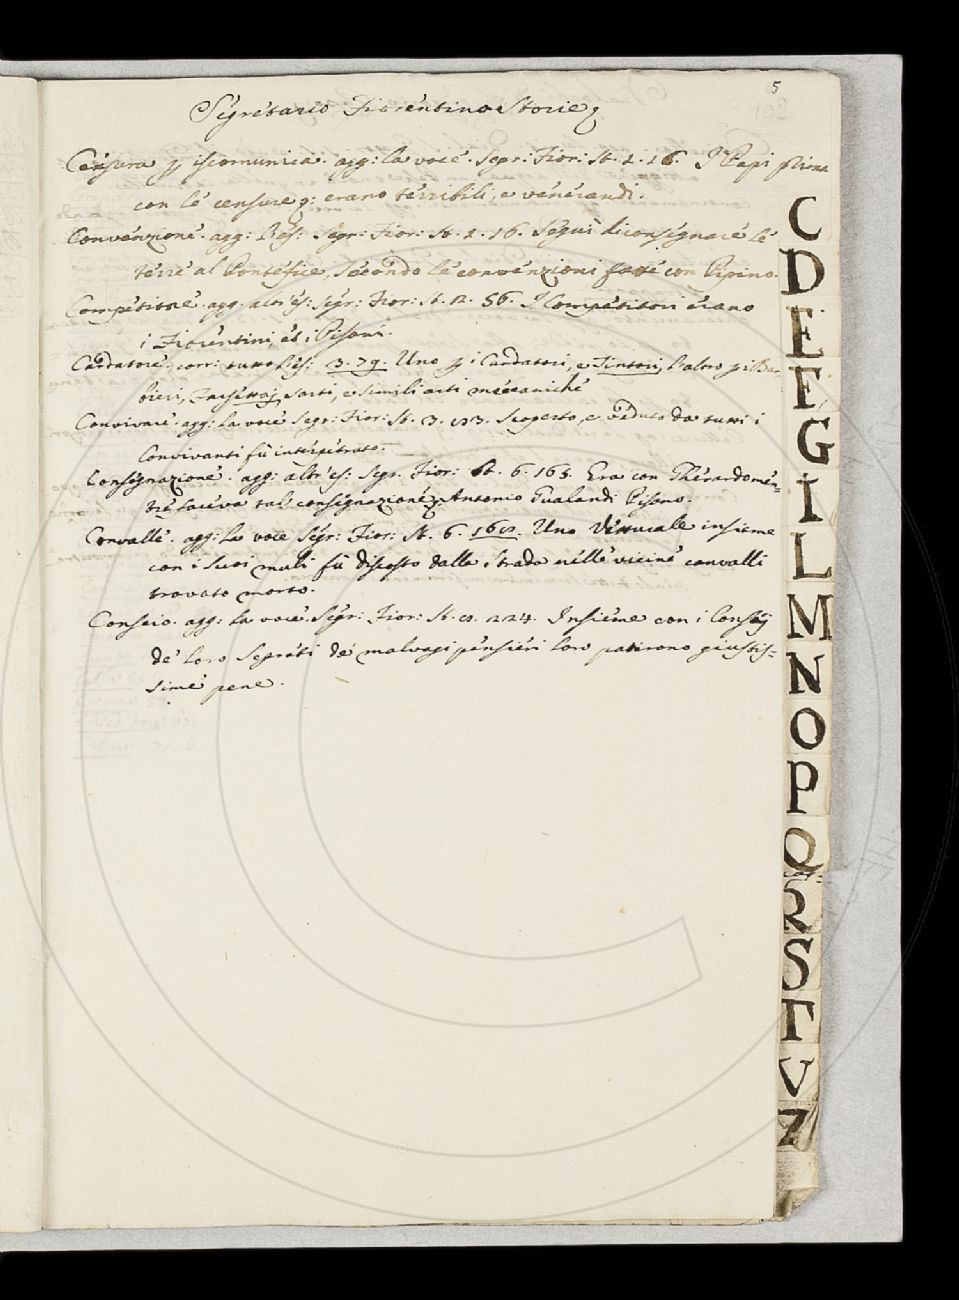 5
Segretario Fiorentino Storie
Censura p iscomunica. agg: la voce. Segr: Fior: St. 1. 16. I Papi prima
con le censure erano terribili, e venerandi.
Convenzione. agg: l'es: Segr: Fior: St. 1. 16. Seguì di consegnare le
terre al Pontefice, secondo le convenzioni fatte con Pipino.
Competitore. agg. altr'es: Segr: Fior: St. 2. 56. I Competitori erano
i Fiorentini, et i Pisani.
Cardatore. corr: tutto l'es: 3. 79. Uno p i Cardatori, e Tintori, l'altro p i Bar
bieri, Farsettaj, Sarti, e simili arti meccaniche
Convivare. agg: la voce Segr: Fior: St. 3. Scoperto, e veduto da tutti i
Convivanti fù interpetrato.
Consegnazione. agg: altr'es: Segr. Fior: St. 6. 165. Era con Gherardo men=
tre faceva tal consegnazione Antonio Gualandi Pisano.
Convalle. agg: la voce Segr: Fior: St. 6. Uno Vetturale insieme
con i suoi muli fù discosto dalla strada nelle vicine convalli
trovato morto.
Conscio. agg: la voce. Segr: Fior: St. 8. 224. Insieme con i Conscij
de' loro segreti de' malvagi pensieri loro patirono giustis=
sime pene.
C
D
E
F
G
I
L
M
N
O
P
Q
R
S
T
V
Z